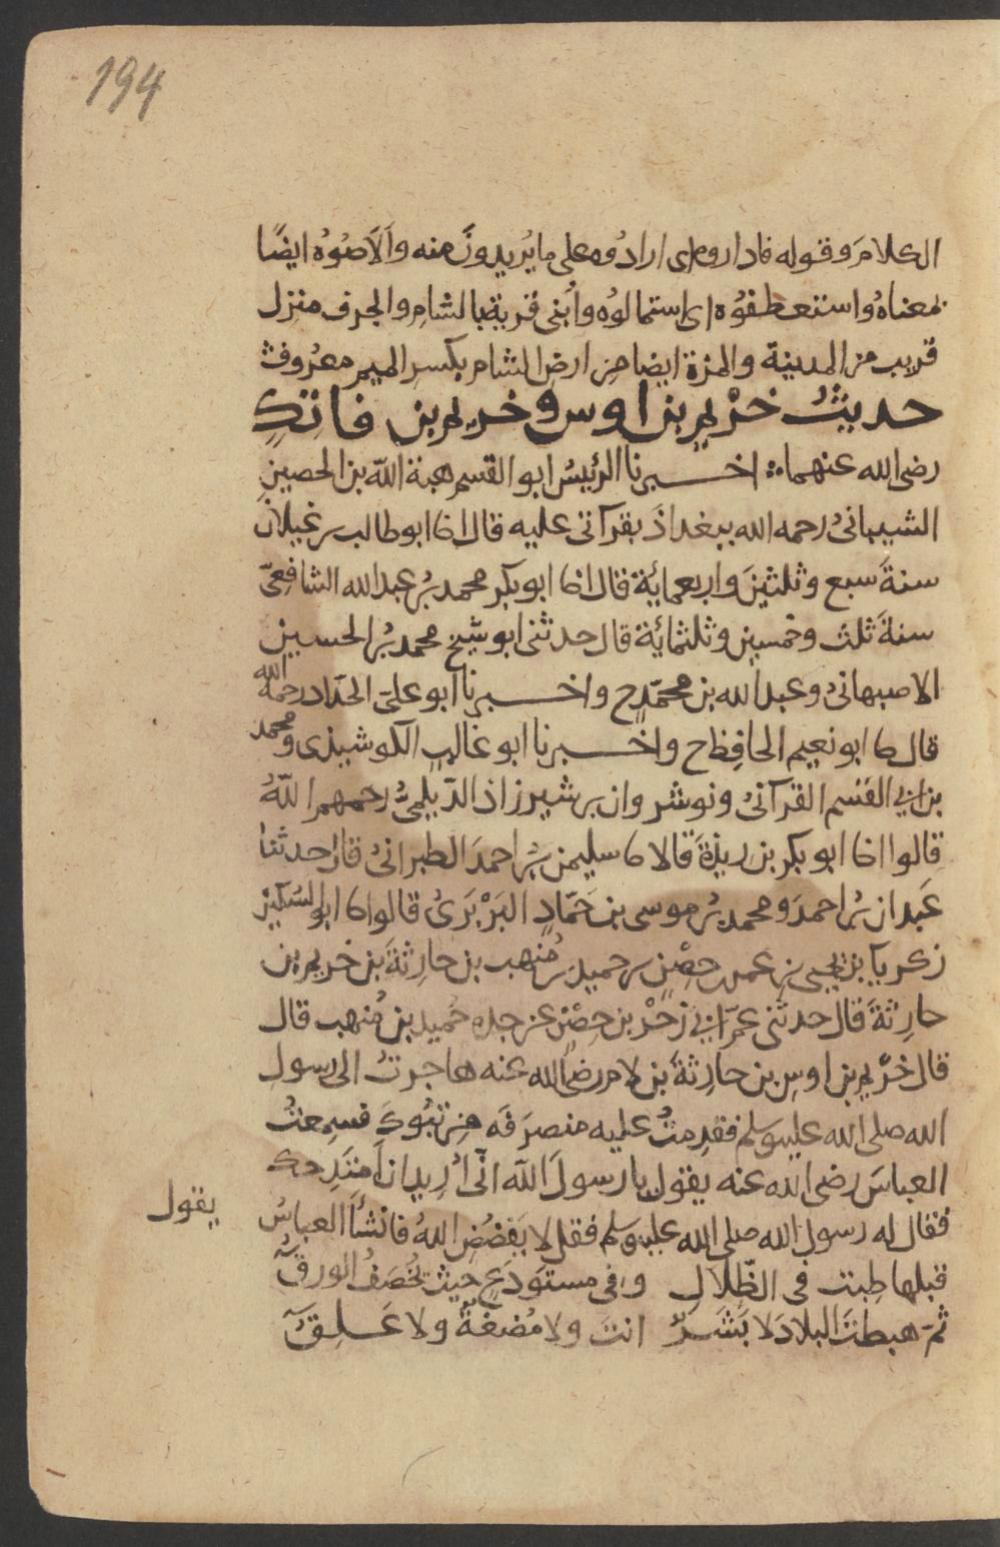 194
الكلام وقوله فاداروه اى ارادُوه على ما يُريدونَ منه وَالَاصُوهُ ايضًا
بمعناهُ واستعطفوُه اى استمالوُه واُبنى قرية بالشامِ والجرف منزل
قريب من المدينة والمزة ايضا مِن ارضِ الشام بكسرِ الميم معرُوف
حديثُ خرْيم بن اوس وخريم بن فاتكٍ
رضى الله عنهما اخبرنا الرئيسُ ابو القسم هبة اللّه بن الحصينِ
الشيبانىُ رحمه الله ببغداذَ بقرآتى عليه قال انا ابو طالب بن غيلان
سنةَ سبع وثلثينَ واربعمايةٍ قال انا ابو بكر محمد بنُ عبد الله الشافعىّ
سنةَ ثلث وخمسين وثلثمائة قال حدثنى ابو شيخ محمد بنُ الحسين
الاصبهانىُ وعبد الله بن محمّدٍ ح واخبرنا ابو علىّ الحدّاد رحمه الله
قال نا ابو نعيم الحافِظ ح واخبرنا ابو غالب الكوشيذى ومحمد
بن ابى القسم القرآنىُ ونوشروان بن شيرزاذ الدّيلمىُّ رحمهم اللّهُ
قالوا انا ابو بكر بن ريذةَ قالا نا سليمن بنُ احمدَ الطبرانىُ قال حدثنا
عَبدان بنُ احمدَ ومحمد بنُ موسى بن حَمّادٍ البَرْبَرىُ قالوا نا ابو السُكين
زكريآ بن يحيى بن عمر بن حِصْنٍ بن حميد بن مُنهب بن حارِثةَ بن خريم بن
حارِثةَ قال حدثنى عمّ ابى زحْرُ بن حِصْنٍ عن جدِهِ حُميد بن مُنهبٍ قال
قال خرَيم بن اوسِ بن حارِثةَ بن لام رضى الله عنه هاجرتُ الى رسولِ
الله صلى الله عليه وسلم فقدِمتُ عليه منصرَفَه مِن تبُوكَ فسمِعتُ
العباسَ رضى الله عنه يقول يا رسولَ اللّه انّى اُرِيد ان اَمتَدِحك
فقال له رسول الله صلى الله عليه وسلم فقل لا يَفضُضِ اللهُ فانشأَ العباسُ
يقول
قبلها طِبتَ فى الظِّلالِ وفى مستوَدَعٍ حيث يُخصَفُ الورقُ
ثمّ هبطتَ البلادَ لا بَشَرٌ انتَ ولا مُضغةٌ ولا عَلِقُ